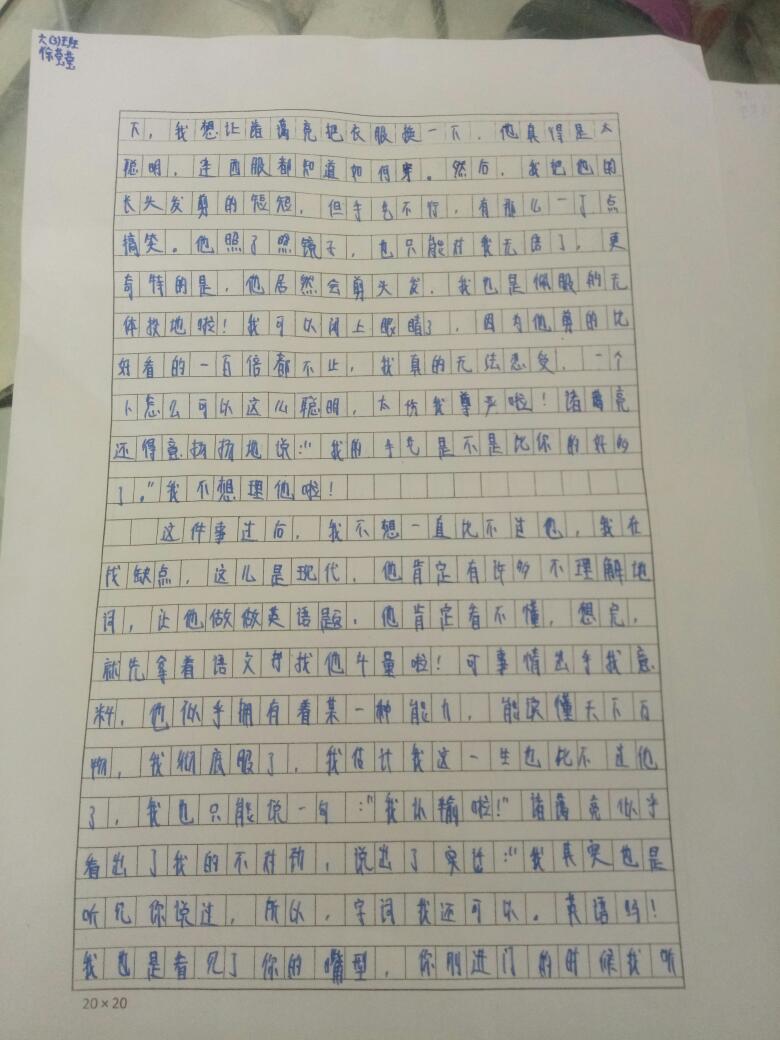 六(3)班
徐莹莹
下，我想让诸葛亮把衣服换一下，他真得是太
聪明，连西服都知道如何穿。然后，我把他的
长头发剪的短短，但手气不行，有那么一丁点
搞笑。他照了照镜子，也只能对我无语了，更
奇特的是，他居然会剪头发，我也是佩服的无
体投地啦！我可以闭上眼睛了，因为他剪的比
好看的一百倍都不止，我真的无法忍受，一个
人怎么可以这么聪明，太伤我尊严啦！诸葛亮
还得意扬扬地说："我的手气是不是比你的好的多
了。"我不想理他啦！
这件事过后，我不想一直比不过他，我在
找缺点，这儿是现代，他肯定有许多不理解地
词，让他做做英语题，他肯定看不懂，想完，
就先拿着语文书找他斗量啦！可事情出乎我意
料，他似乎拥有着某一种能力，能读懂天下万
物，我彻底服了，我估计我这一生也比不过他
了，我也只能说一句："我认输啦！"诸葛亮似乎
看出了我的不对劲，说出了实话："我其实也是
听见你说过，所以，字词我还可以。英语吗！
我也是看见了你的嘴型，你刚进门的时候我听
20×20